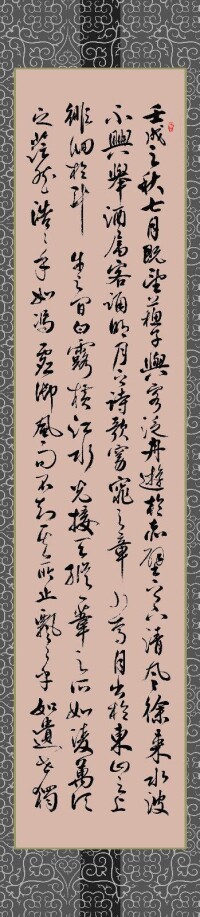 壬戌之秋七月既望蘇子與客泛舟遊於赤壁之下清風徐來水波
不興舉酒屬客誦明月之詩歌窈窕之章少焉月出於東山之上
徘徊於斗牛之間白露橫江水光接天縱一葦之所如凌萬頃
之茫然浩浩乎如馮虛御風而不知其所止飄飄乎如遺世獨